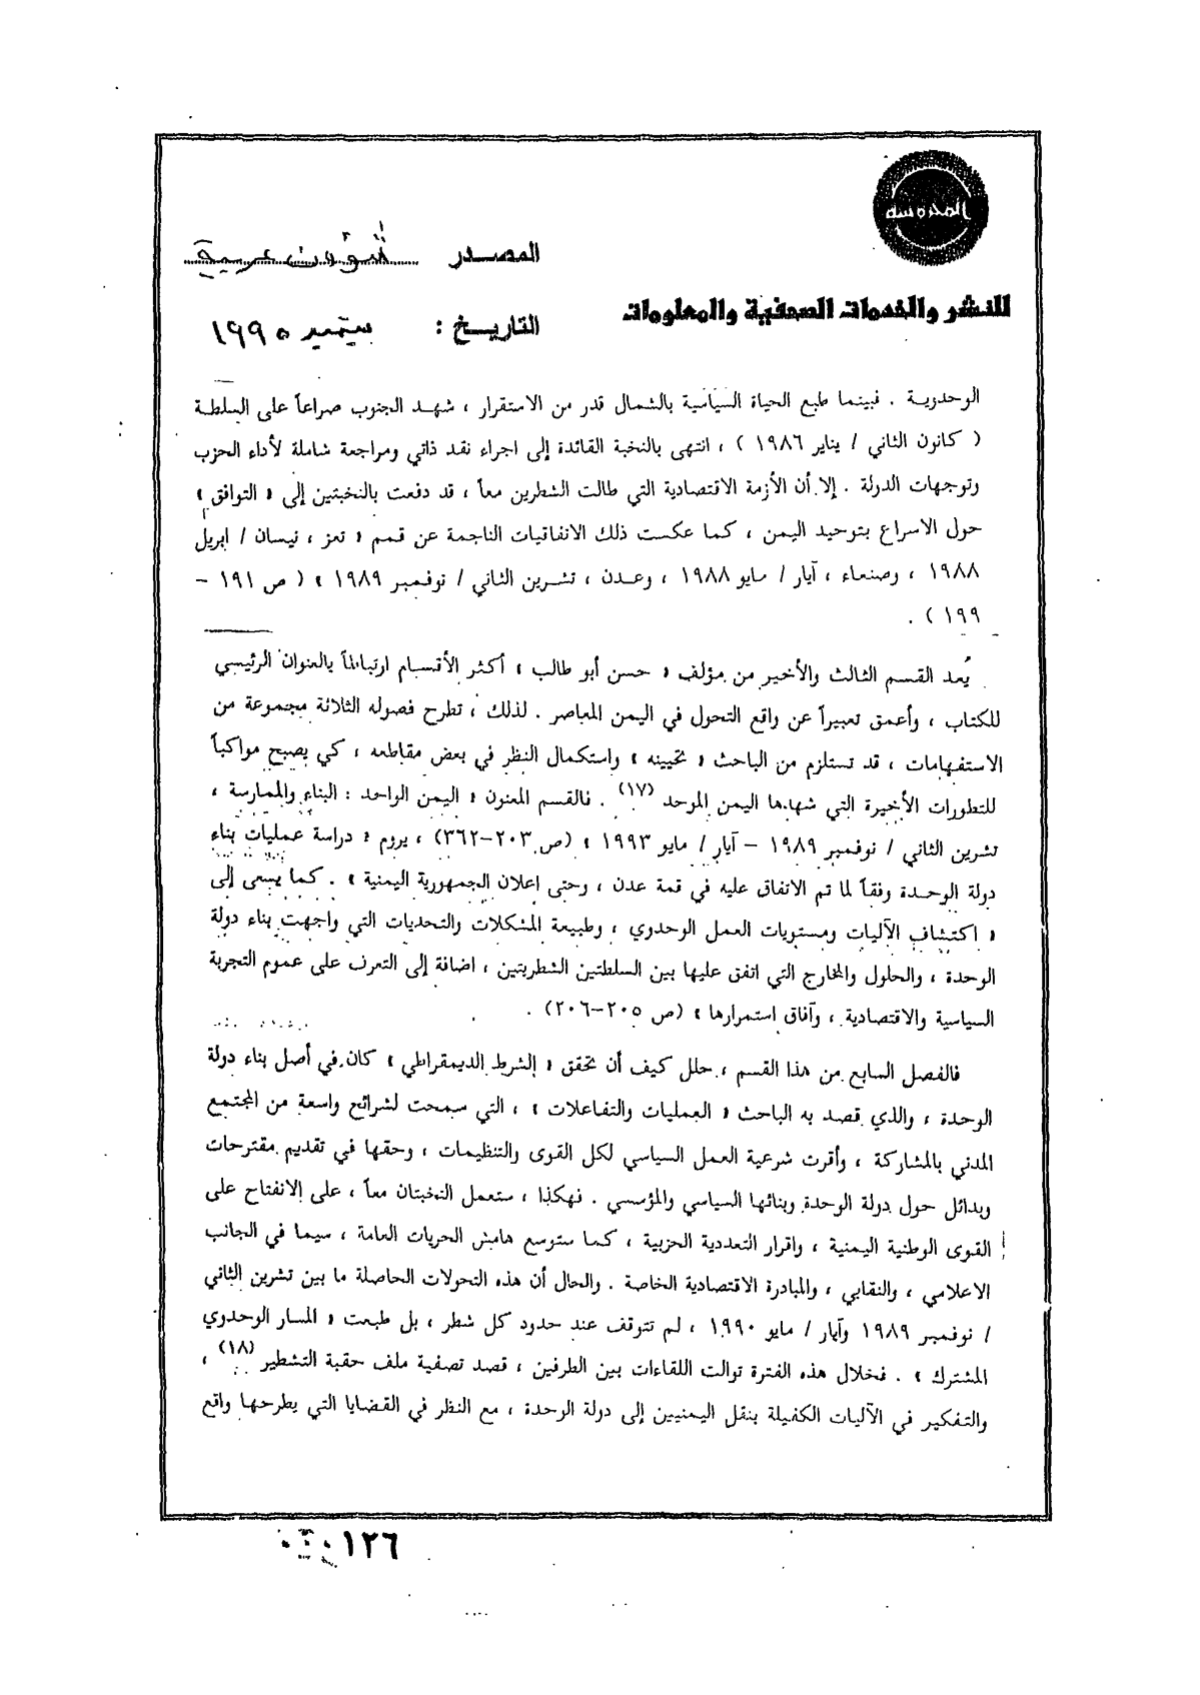 المحروسة
المصدر شؤون عربية
للنشر والخدمات الصحفية والمعلومات
التاريخ : سبتمبر ١٩٩٥
الوحدوية . فبينما طبع الحياة السياسية بالشمال قدر من الاستقرار ، شهد الجنوب صراعاً على السلطة
( كانون الثاني / يناير ١٩٨٦ ) ، انتهى بالنخبة القائدة إلى اجراء نقد ذاتي ومراجعة شاملة لأداء الحزب
وتوجهات الدولة . إلا أن الأزمة الاقتصادية التي طالت الشطرين معاً ، قد دفعت بالنخبتين إلى « التوافق »
حول الاسراع بتوحيد اليمن ، كما عكست ذلك الاتفاقيات الناجمة عن قمم « تعز ، نيسان / ابريل
١٩٨٨ ، وصنعاء ، آيار / مايو ١٩٨٨ ، وعدن ، تشرين الثاني / نوفمبر ١٩٨٩ » ( ص ١٩١ –
١٩٩ ) .
يُعد القسم الثالث والأخير من مؤلف « حسن أبو طالب » أكثر الأقسام ارتباطاً بالعنوان الرئيسي
للكتاب ، وأعمق تعبيراً عن واقع التحول في اليمن المعاصر . لذلك ، تطرح فصوله الثلاثة مجموعة من
الاستفهامات ، قد تستلزم من الباحث « تحيينه » واستكمال النظر في بعض مقاطعه ، كي يصبح مواكباً
للتطورات الأخيرة التي شهدها اليمن الموحد (١٧) . فالقسم المعنون « اليمن الواحد : البناء والممارسة ،
تشرين الثاني / نوفمبر ١٩٨٩ – آيار / مايو ١٩٩٣ » (ص ٢٠٣–٣٦٢) ، يروم « دراسة عمليات بناء
دولة الوحدة وفقاً لما تم الاتفاق عليه في قمة عدن ، وحتى إعلان الجمهورية اليمنية » . كما يسعى إلى
« اكتشاف الآليات ومستويات العمل الوحدوي ، وطبيعة المشكلات والتحديات التي واجهت بناء دولة
الوحدة ، والحلول والمخارج التي اتفق عليها بين السلطتين الشطريتين ، اضافة إلى التعرف على عموم التجربة
السياسية والاقتصادية ، وآفاق استمرارها » (ص ٢٠٥–٢٠٦) .
فالفصل السابع من هذا القسم ، حلل كيف أن تحقق « الشرط الديمقراطي » كان في أصل بناء دولة
الوحدة ، والذي قصد به الباحث « العمليات والتفاعلات » ، التي سمحت لشرائح واسعة من المجتمع
المدني بالمشاركة ، وأقرت شرعية العمل السياسي لكل القوى والتنظيمات ، وحقها في تقديم مقترحات
وبدائل حول دولة الوحدة وبنائها السياسي والمؤسسي . فهكذا ، ستعمل النخبتان معاً ، على الانفتاح على
القوى الوطنية اليمنية ، واقرار التعددية الحزبية ، كما ستوسع هامش الحريات العامة ، سيما في الجانب
الاعلامي ، والنقابي ، والمبادرة الاقتصادية الخاصة . والحال أن هذه التحولات الحاصلة ما بين تشرين الثاني
/ نوفمبر ١٩٨٩ وآيار / مايو ١٩٩٠ ، لم تتوقف عند حدود كل شطر ، بل طبعت « المسار الوحدوي
المشترك » . فخلال هذه الفترة توالت اللقاءات بين الطرفين ، قصد تصفية ملف حقبة التشطير (١٨) ،
والتفكير في الآليات الكفيلة بنقل اليمنيين إلى دولة الوحدة ، مع النظر في القضايا التي يطرحها واقع
١٢٦